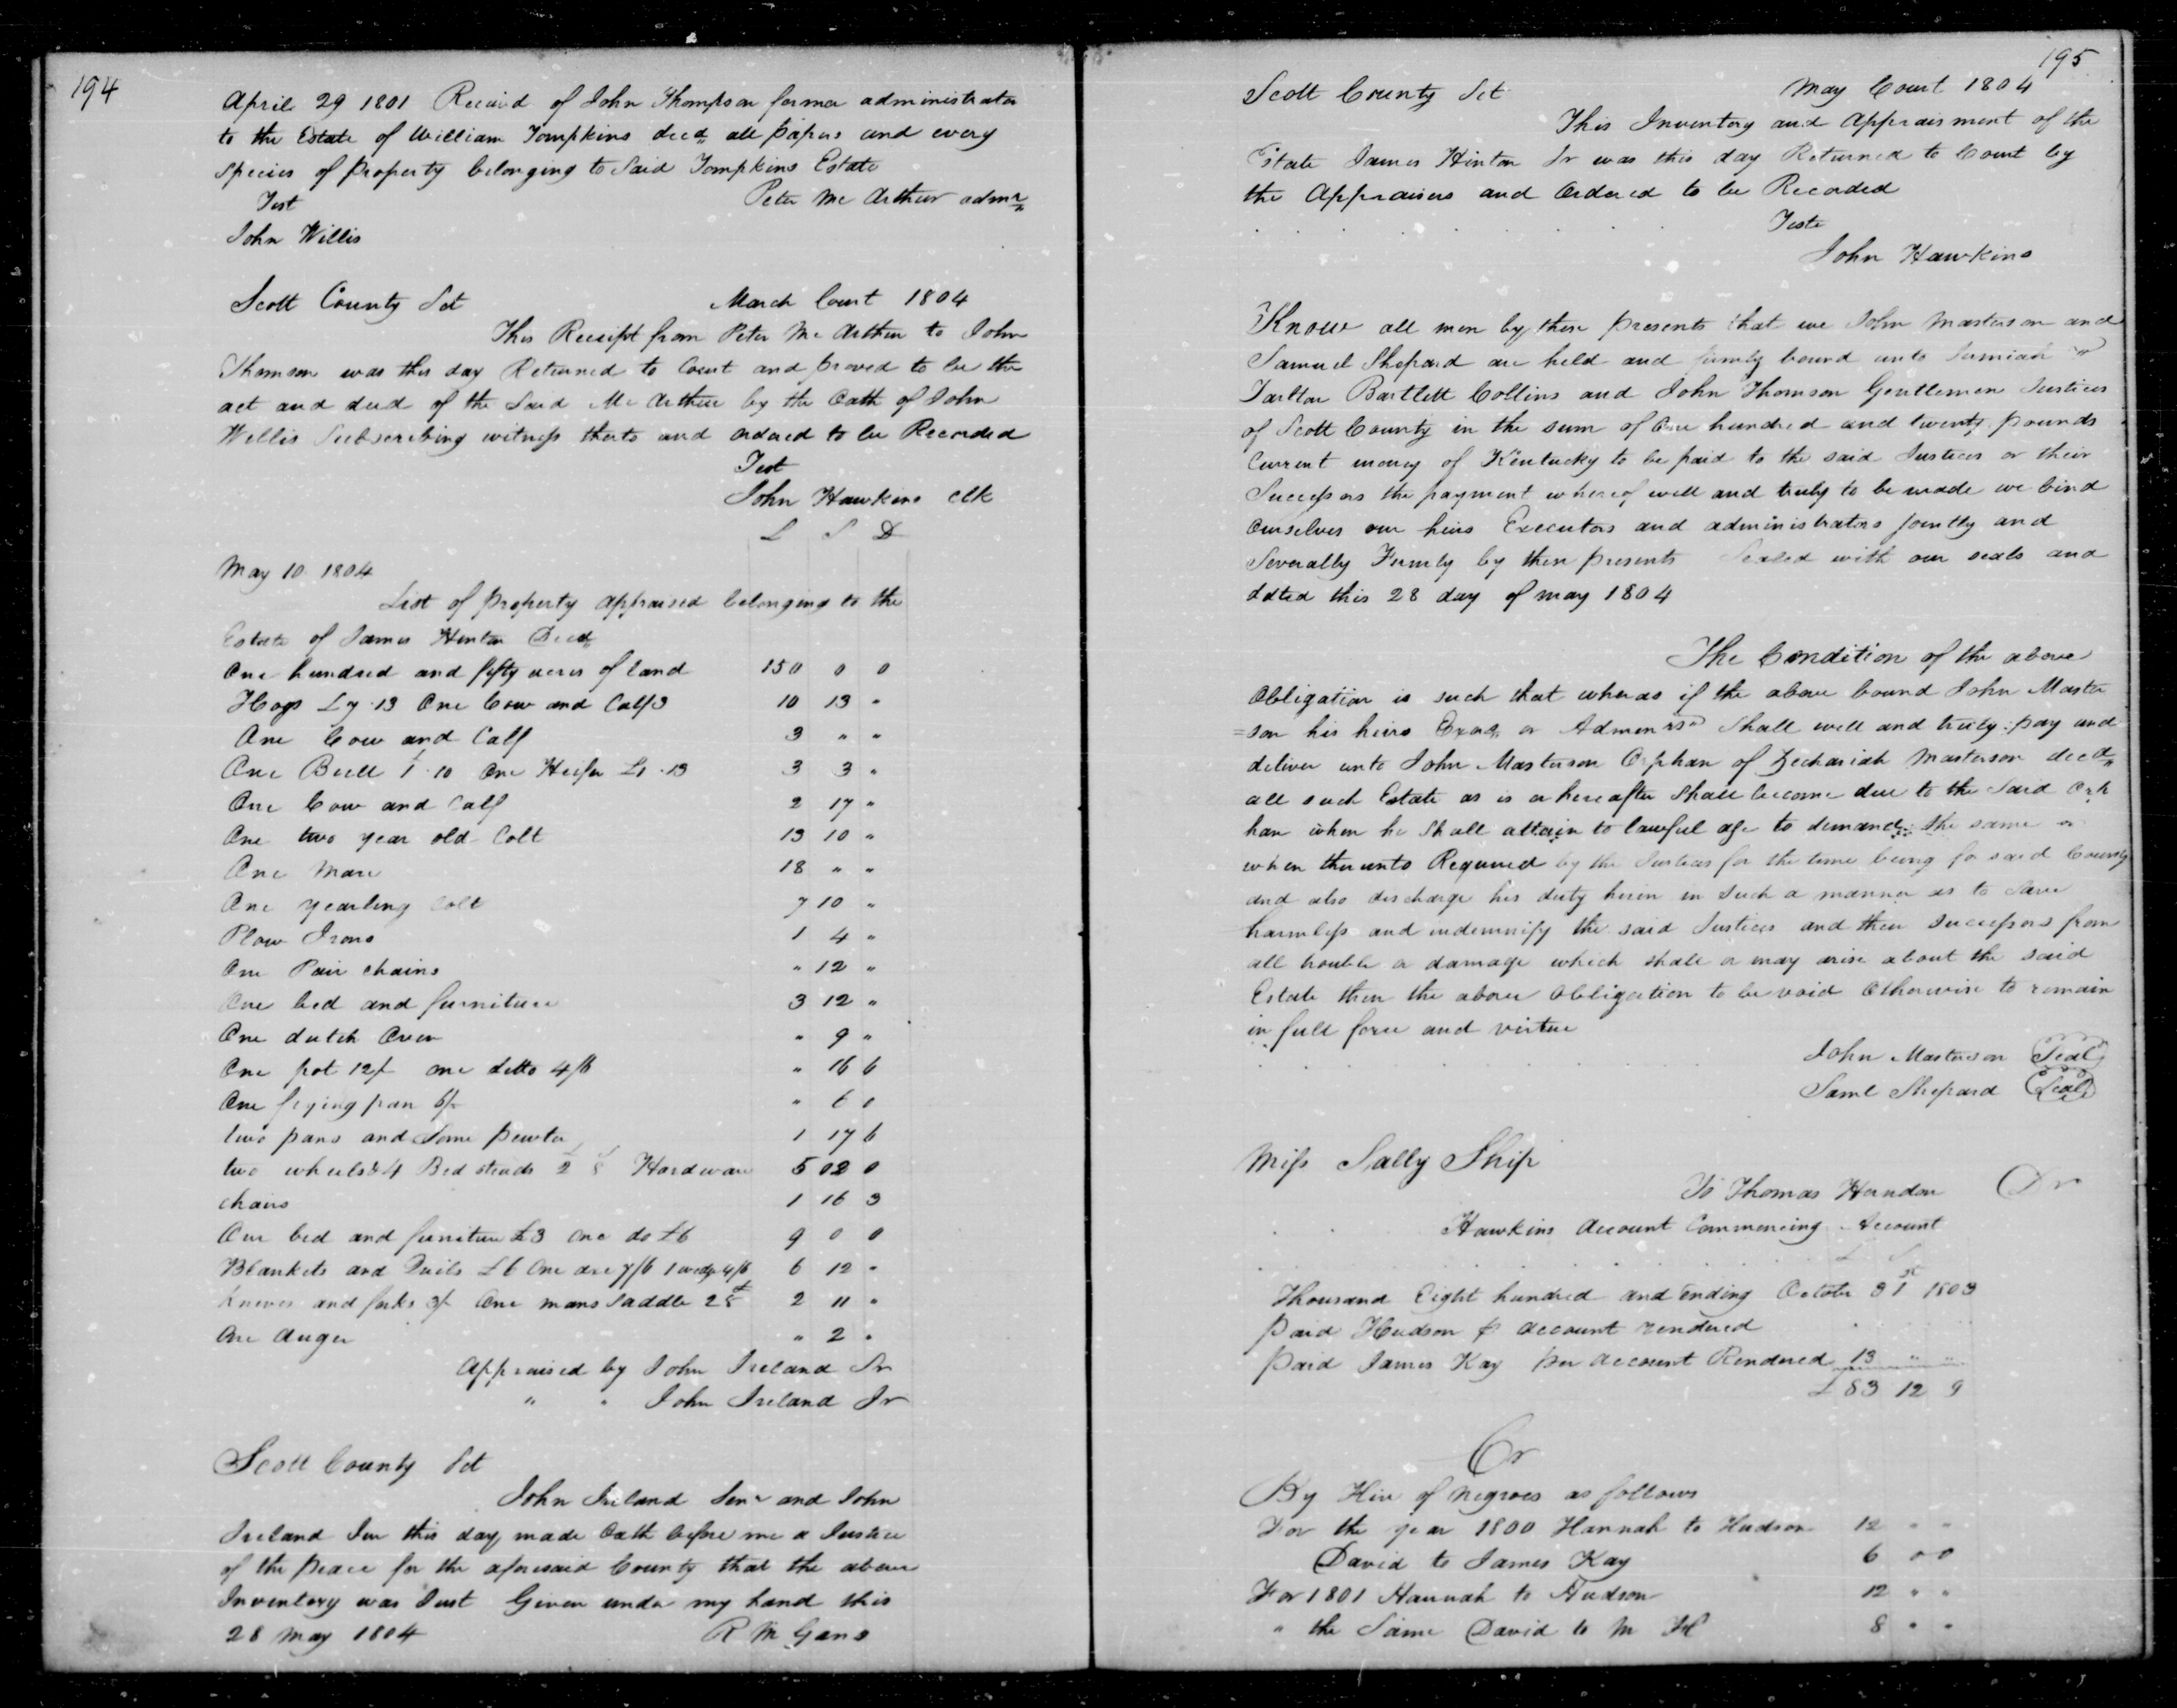 194
April 29 1801 Receivd of John Thompson former administrator
to the Estate of William Tompkins decd all papers and every
species of property belonging to Said Tompkins Estate
Test Peter Mc Arthur admr
John Willis
Scott County Sct March Court 1804
This Receipt from Peter Mc Arthur to John
Thomson was this day Returned to Court and proved to be the
act and deed of the Said Mc Arthur by the Oath of John
Willis Subscribing witness thereto and ordered to be Recorded
Test
John Hawkins Clk
L S D
May 10 1804
List of property appraised belonging to the
Estate of James Hinton Decd
One hundred and fifty acres of land 150 0 0
Hogs £7.13 One Cow and Calf 3 10 13 "
One Cow and Calf 3 " "
One Bull £1.10 One Heifer £1.13 3 3 "
One Cow and Calf 2 17 "
One two year old Colt 13 10 "
One Mare 18 " "
One yearling Colt 7 10 "
Plow Irons 1 4 "
One Pair chains " 12 "
One bed and furniture 3 12 "
One dutch Oven " 9 "
One pot 12/ one ditto 4/6 " 16 6
One frying pan 6/ " 6 0
two pans and Some pewter 1 17 6
two wheels & 4 Bed steads 2 8 Hardware 5 02 0
chairs 1 16 3
One bed and furniture £3 One do £6 9 0 0
Blankets and Quils £6 One axe 7/6 1 wedge 4/6 6 12 "
knives and forks 3/ One mans Saddle 2 8 2 11 "
One Auger " 2 "
Appraised by John Ireland Sr
" " John Ireland Jr
Scott County Sct
John Ireland Senr and John
Ireland Jun this day made Oath before me a Justice
of the peace for the aforesaid County that the above
Inventory was Just Given under my hand this
28 May 1804 R M Gano
195
Scott County Sct May Court 1804
This Inventory and Appraisment of the
Estate James Hinton Sr was this day Returned to Court by
the Appraisers and Ordered to be Recorded
Teste
John Hawkins
Know all men by these presents that we John Masterson and
Samuel Shepard are held and firmly bound unto Jermiah
Tarlton Bartlett Collins and John Thomson Gentlemen Justices
of Scott County in the sum of One hundred and twenty pounds
Current money of Kentucky to be paid to the said Justices or their
Successors the payment whereof well and truly to be made we bind
Ourselves our heirs Executors and administrators jointly and
Severally Firmly by these presents Sealed with our seals and
dated this 28 day of may 1804
The Condition of the above
Obligation is such that whereas if the above bound John Master
=son his heirs Exors or Admenrs Shall well and truly pay and
deliver unto John Masterson Orphan of Zechariah Masterson decd
all such Estate as is or hereafter Shall become due to the Said Orp
han when he Shall attain to lawful age to demand the same or
when thereunto Required by the Justices for the time being for said County
and also discharge his duty herein in such a manner as to Save
harmless and indemnify the said Justices and their successors from
all trouble or damage which shall or may arise about the said
Estate then the above Obligation to be void Otherwise to remain
in full force and virtue
John Masterson Seal
Saml Shepard Seal
Miss Sally Ship
To Thomas Herndon Dr
Hawkins Account Commencing Account
£ S
Thousand Eight hundred and Ending October 31st 1803
Paid Hudson P account rendered
Paid James Kay per account Rendered 13 " "
£ 83 12 9
Cr
By Hire of Negroes as follows
For the year 1800 Hannah to Hudson 12 " "
David to James Kay 6 0 0
For 1801 Hannah to Hudson 12 " "
" the Same David to M 8 " "